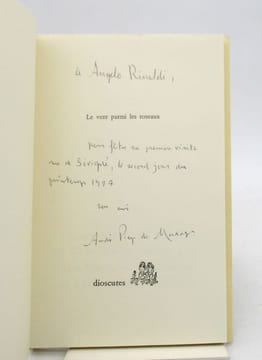 à Angelo Rinaldi,
Le vent parmi les roseaux
pour fêter sa première visite
rue de Sévigné, le second jour du
printemps
son ami
André Pieyre de
dioscures